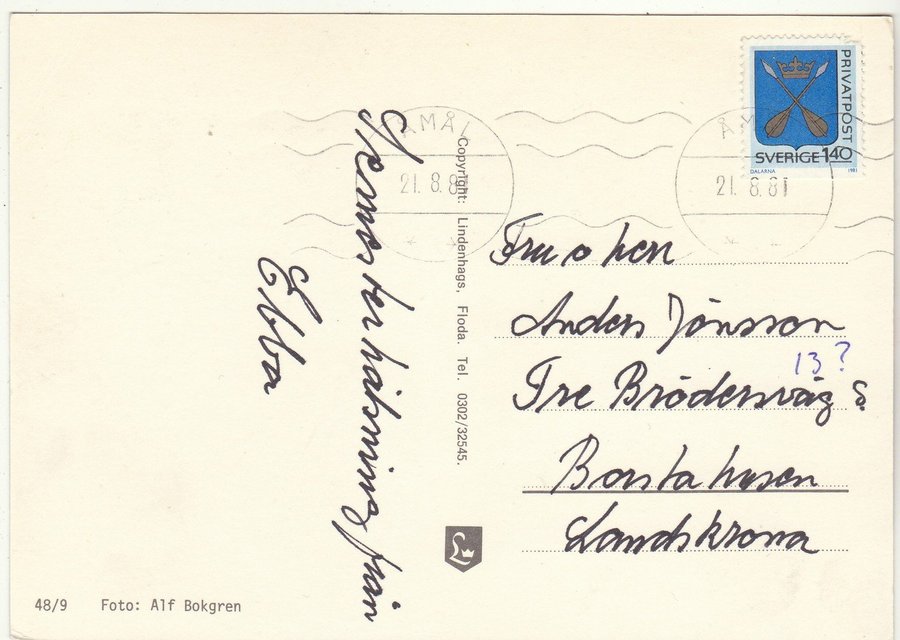 Sommarhälsning från
Ebba
Copyright: Lindenhags, Floda. Tel. 0302/32545.
48/9 Foto: Alf Bokgren
ÅMÅL
21. 8. 81
ÅM
21. 8. 81
PRIVATPOST
SVERIGE 140
DALARNA 1981
Fru o herr
Anders Jönsson
13 ?
Tre Brödersväg 8
Borstahusen
Landskrona